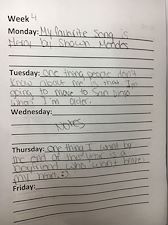 Week 4
Monday: My favorite song is
Mercy by Shawn Mendes
Tuesday: One thing people don't
know about me is that I'm
going to move to San Diego
when I'm older.
Wednesday:
Notes
Thursday: One thing I want by
the end of this year is a
boyfriend who won't break
my heart :)
Friday: